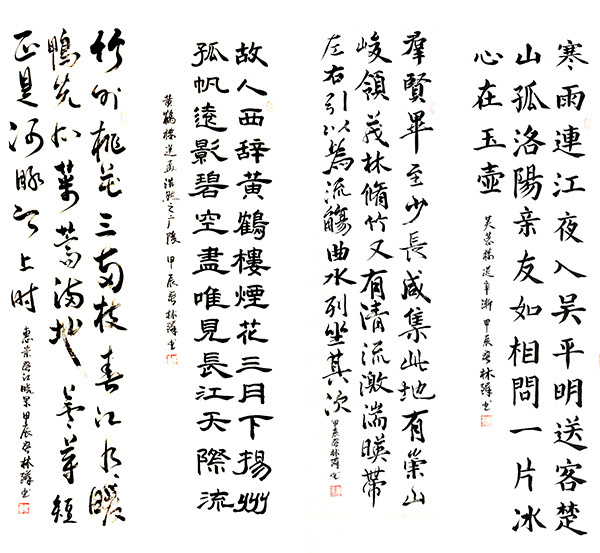 寒雨連江夜入吴平明送客楚
山孤洛陽亲友如相問一片冰
心在玉壺
芙蓉樓送辛漸 甲辰春林书
羣賢畢至少長咸集此地有崇山
峻領茂林脩竹又有清流激湍暎帶
左右引以為流觴曲水列坐其次
甲辰春林书
故人西辞黄鶴樓煙花三月下揚州
孤帆遠影碧空盡唯見長江天際流
黄鶴樓送孟浩然之广陵 甲辰春林书
竹外桃花三两枝春江水暖
鴨先知蔞蒿满地芦芽短
正是河豚欲上时
惠崇春江晚景甲辰春林书